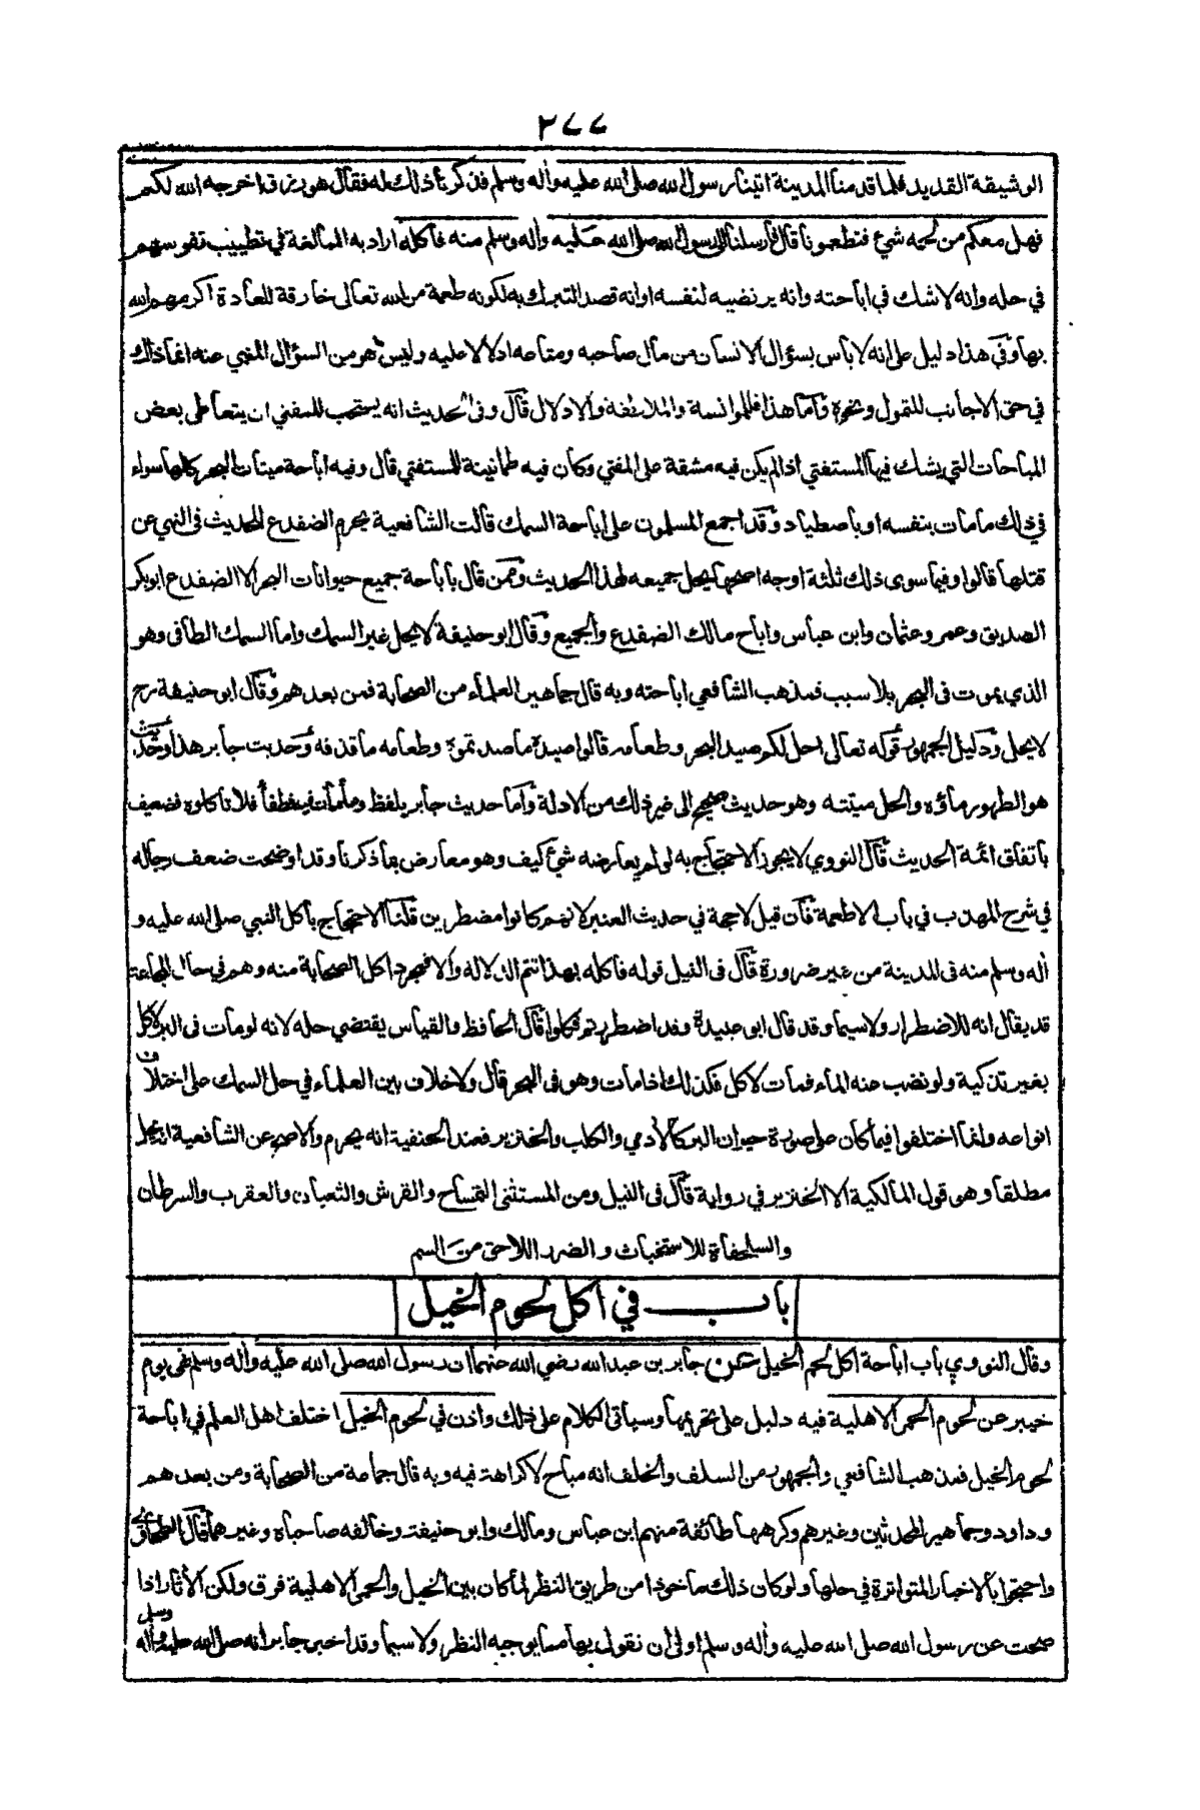 ٢٧٧
الوشيقة القديد فلما قدمنا المدينة اتينا رسول الله صلى الله عليه وآله وسلم فذكرنا ذلك له فقال هو رزق اخرجه الله لكم
فهل معكم من لحمه شيء فتطعمونا قال فارسلنا الى رسول الله صلى الله عليه وآله وسلم منه فاكله اراد به المبالغة في تطييب نفوسهم
في حله وانه لا شك في اباحته وانه يرتضيه لنفسه او انه قصد التبرك به لكونه طعمة من الله تعالى خارقة للعادة اكرمهم الله
بها وفى هذا دليل على انه لا بأس بسؤال الانسان من مال صاحبه ومتاعه ادلالا عليه وليس هو من السؤال المنهي عنه انما ذلك
في حق الاجانب للتمول ونحوه واما هذا فللموانسة والملاطفة والادلال قال وفى الحديث انه يستحب للمفتي ان يتعاطى بعض
المباحات التي يشك فيها المستفتي اذا لم يكن فيه مشقة على المفتي وكان فيه طمانينة للمستفتي قال وفيه اباحة ميتات البحر كلها سواء
في ذلك ما مات بنفسه او باصطياد وقد اجمع المسلمون على اباحة السمك قالت الشافعية يحرم الضفدع للحديث فى النهي عن
قتلها قالوا وفيما سوى ذلك ثلثة اوجه اصحها يحل جميعه لهذا الحديث وممن قال باباحة جميع حيوانات البحر الا الضفدع ابوبكر
الصديق وعمر وعثمان وابن عباس واباح مالك الضفدع والجميع وقال ابو حنيفة لا يحل غير السمك واما السمك الطافي وهو
الذي يموت فى البحر بلا سبب فمذهب الشافعي اباحته وبه قال جماهير العلماء من الصحابة فمن بعدهم وقال ابو حنيفة رح
لا يحل ودليل الجمهور قوله تعالى احل لكم صيد البحر وطعامه قالوا صيده ما صدتموه وطعامه ما قذفه وحديث جابر هذا وحديث
هو الطهور ماؤه والحل ميتته وهو حديث صحيح الى غير ذلك من الادلة واما حديث جابر بلفظ وما مات فيه فطفا فلا تاكلوه فضعيف
باتفاق ائمة الحديث قال النووي لا يجوز الاحتجاج به لو لم يعارضه شيء كيف وهو معارض بما ذكرنا وقد اوضحت ضعف رجاله
في شرح المهذب في باب الاطعمة فان قيل لا حجة في حديث العنبر لانهم كانوا مضطرين قلنا الاحتجاج باكل النبي صلى الله عليه و
آله وسلم منه فى المدينة من غير ضرورة قال فى النيل قوله فاكله بهذا تتم الدلالة والا فمجرد اكل الصحابة منه وهم في حال المجاعة
قد يقال انه للاضطرار ولا سيما وقد قال ابو عبيدة وقد اضطررتم فكلوا قال الحافظ والقياس يقتضي حله لانه لو مات فى البر لاكل
بغير تذكية ولو نضب عنه الماء فمات لاكل فكذلك اذا مات وهو فى البحر قال ولا خلاف بين العلماء في حل السمك على اختلاف
انواعه وانما اختلفوا فيما كان على صورة حيوان البر كالآدمي والكلب والخنزير فعند الحنفية انه يحرم والاصح عن الشافعية انه يحل
مطلقا وهو قول المالكية الا الخنزير في رواية قال فى النيل ومن المستثنى التمساح والقرش والثعبان والعقرب والسرطان
والسلحفاة للاستخباث والضرر اللاحق من السم
باب في اكل لحوم الخيل
وقال النووي باب اباحة اكل لحم الخيل عن جابر بن عبد الله رضي الله عنهما ان رسول الله صلى الله عليه وآله وسلم نهى يوم
خيبر عن لحوم الحمر الاهلية فيه دليل على تحريمها وسياتي الكلام على ذلك واذن في لحوم الخيل اختلف اهل العلم في اباحة
لحوم الخيل فمذهب الشافعي والجمهور من السلف والخلف انه مباح لا كراهة فيه وبه قال جماعة من الصحابة ومن بعدهم
وداود وجماهير المحدثين وغيرهم وكرهها طائفة منهم ابن عباس ومالك وابو حنيفة وخالفه صاحباه وغيرهما قال الطحاوي
واحتجوا بالاخبار المتواترة في حلها ولو كان ذلك ماخوذا من طريق النظر لما كان بين الخيل والحمر الاهلية فرق ولكن الآثار اذا
صحت عن رسول الله صلى الله عليه وآله وسلم اولى ان نقول بها مما يوجبه النظر ولا سيما وقد اخبر جابر انه صلى الله عليه وآله وسلم